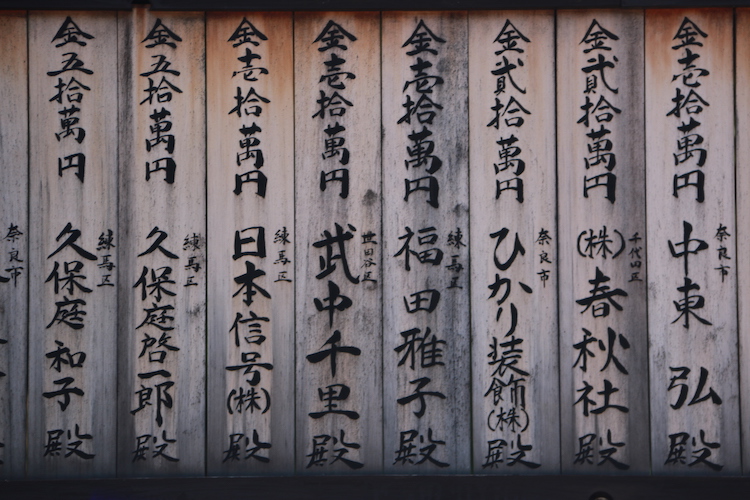 金壱拾萬円
奈良市
中東 弘 殿
金貮拾萬円
千代田区
(株)春秋社 殿
金貮拾萬円
奈良市
ひかり装飾(株)殿
金壱拾萬円
練馬区
福田雅子 殿
金壱拾萬円
世田谷区
武中千里 殿
金壱拾萬円
練馬区
日本信号(株)殿
金五拾萬円
練馬区
久保庭啓一郎 殿
金五拾萬円
練馬区
久保庭和子 殿
奈良市